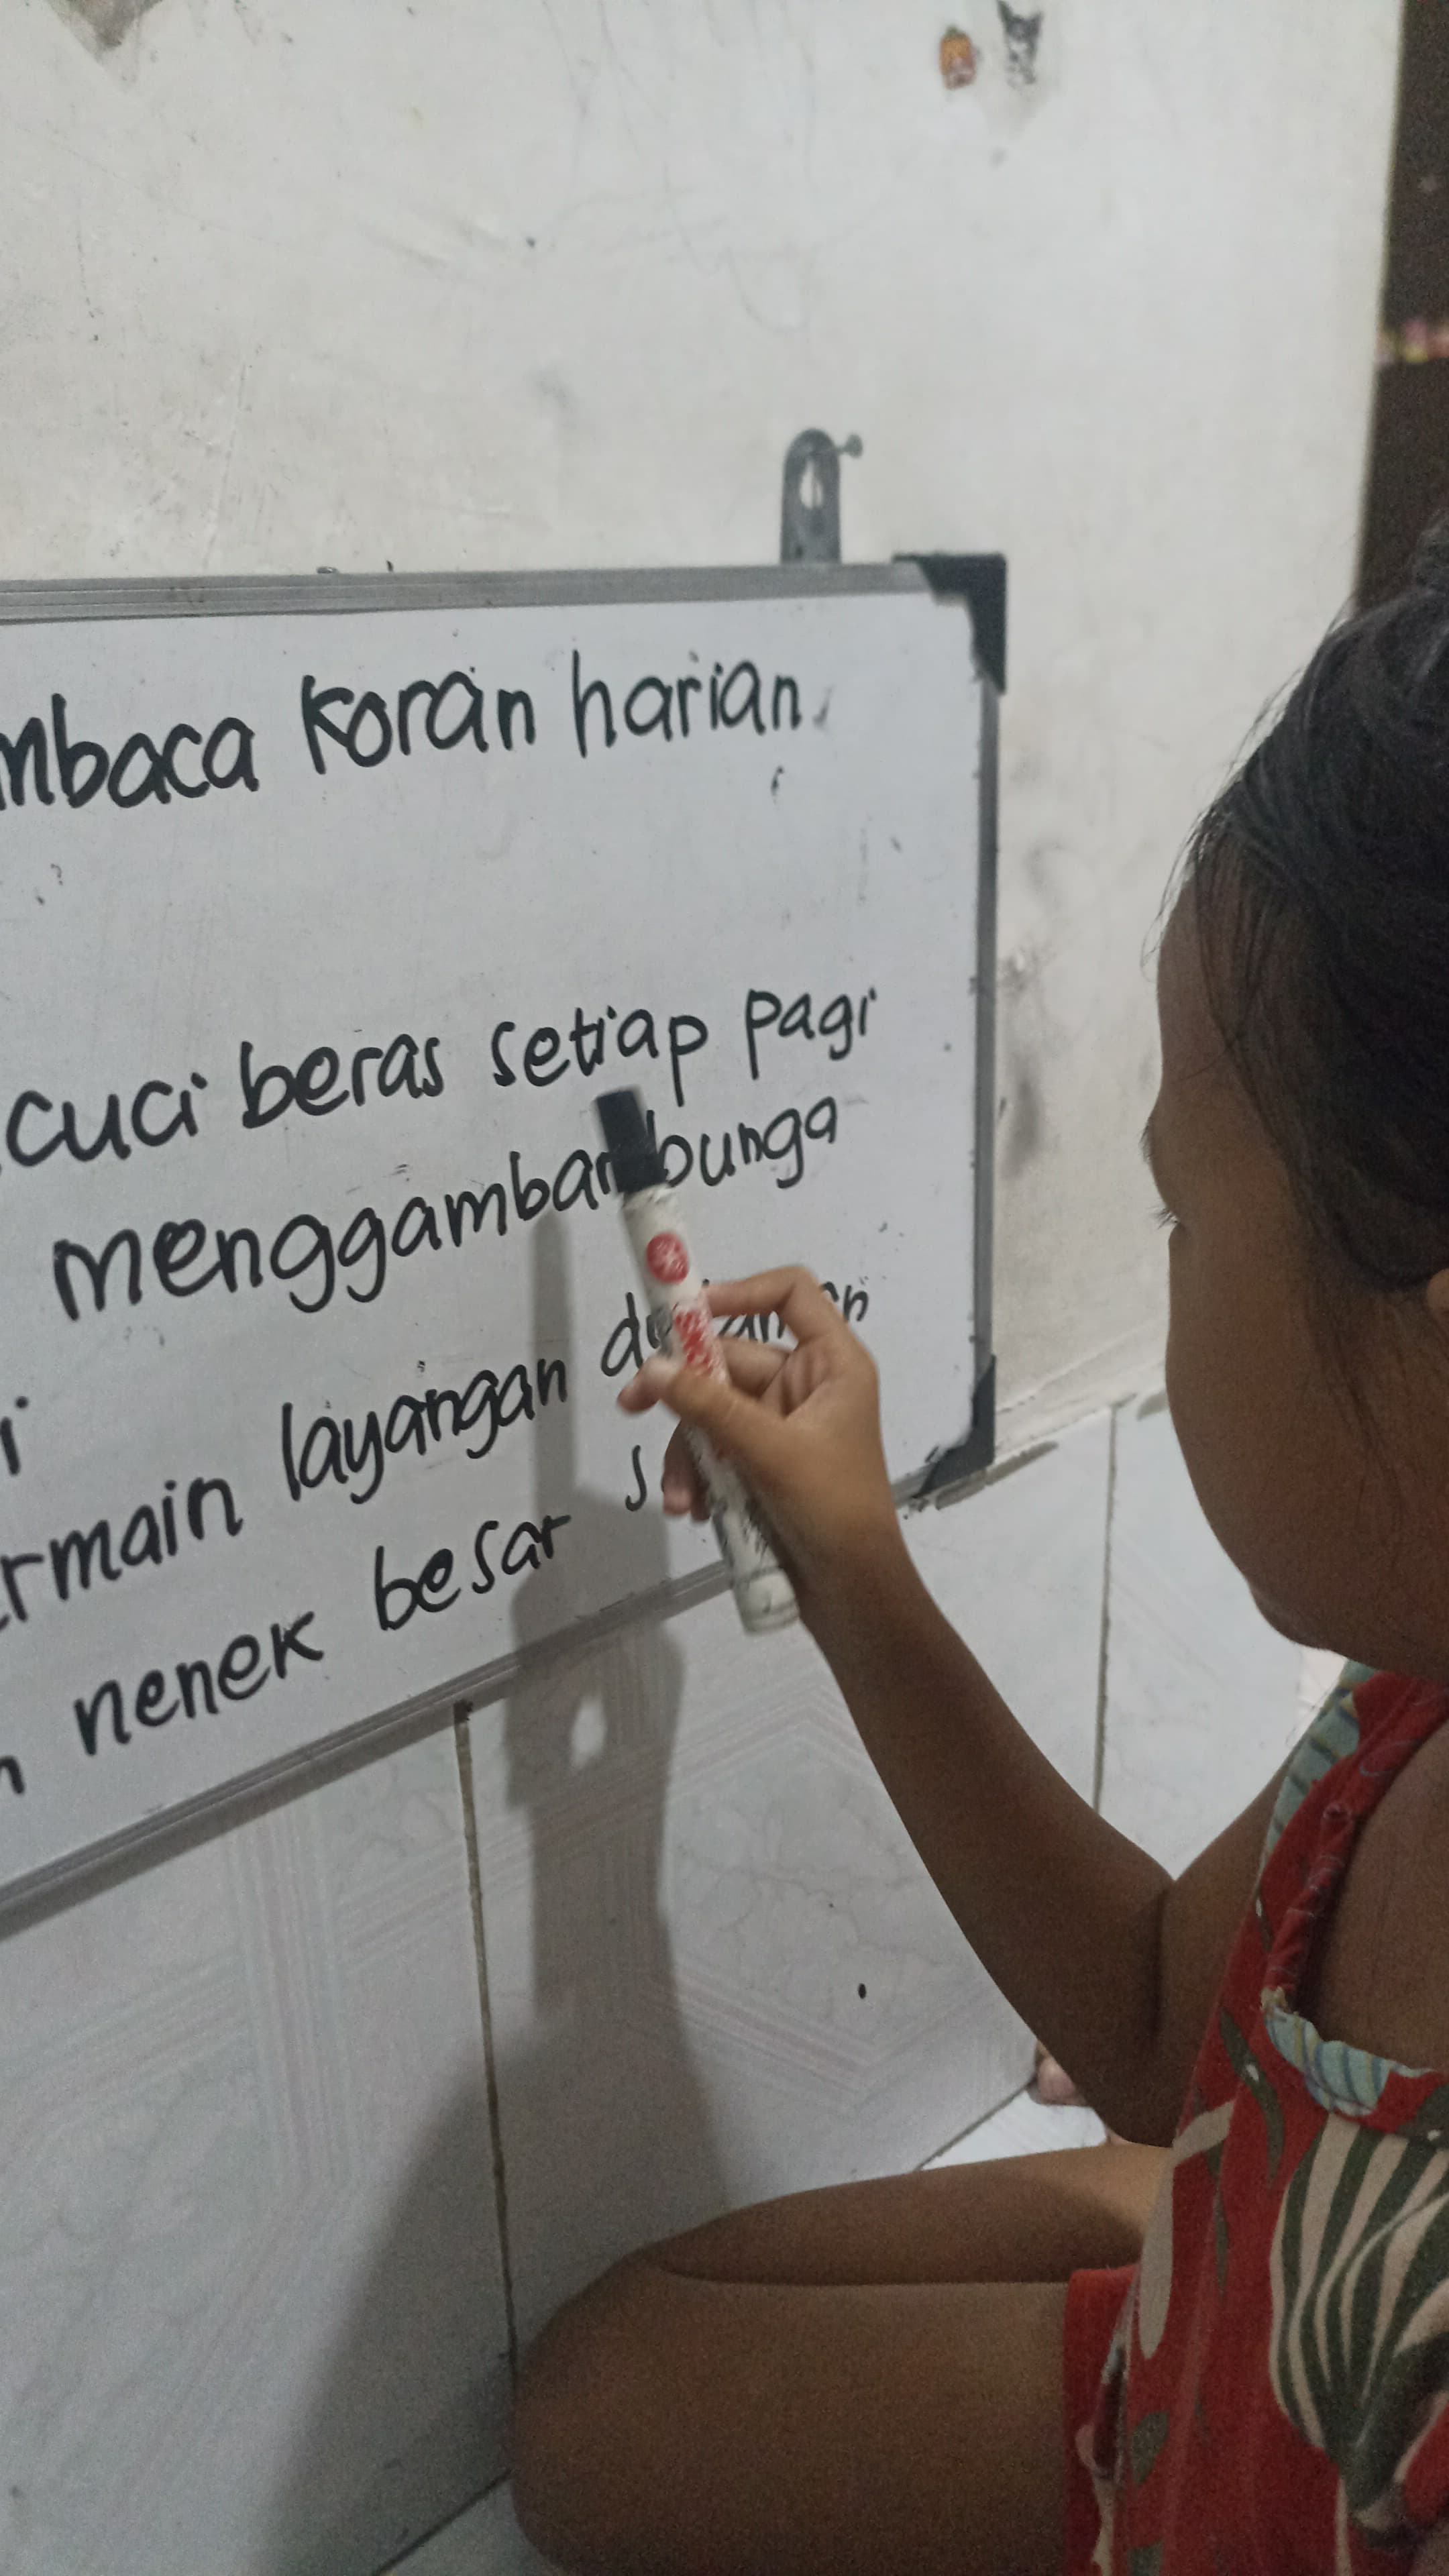 mbaca koran harian
cuci beras setiap pagi
menggambar bunga
i
rmain layangan
n nenek besar